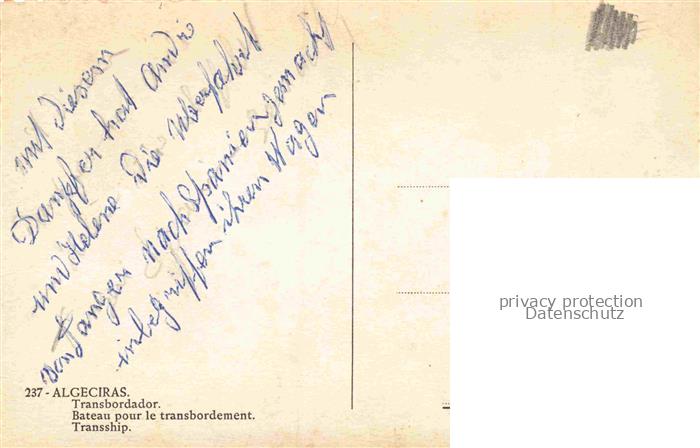 mit diesem
Dampfer hat André
und Helene Die Überfahrt
von Tanger nach Spanien gemacht
inbegriffen ihren Wagen
237 - ALGECIRAS.
Transbordador.
Bateau pour le transbordement.
Transship.
privacy protection
Datenschutz